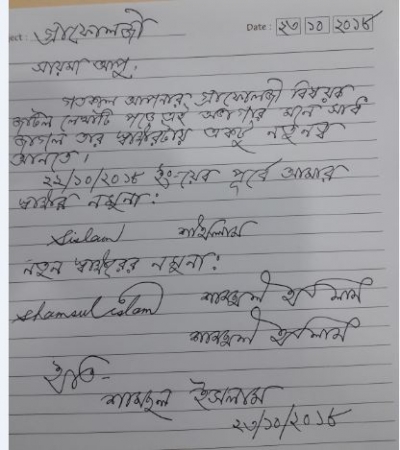 ect: গ্রাফোলজী Date: ২৩ ১০ ২০১৮
সায়মা আপু,
গতকাল আপনার গ্রাফোলজী বিষয়ক
জটিল লেখাটি পড়ে এই অভাগার মনে সাধ
জাগল তার স্বাক্ষরটায় একটু নতুনত্ব
আনতে।
২২/১০/২০১৮ ইং-য়ের পূর্বে আমার
স্বাক্ষর নমুনা:
Sislam শাইসলাম
নতুন স্বাক্ষরের নমুনা:
Shamsul islam শামছুল ইসলাম
শামছুল ইসলাম
ইতি-
শামছুল ইসলাম
২৩/১০/২০১৮